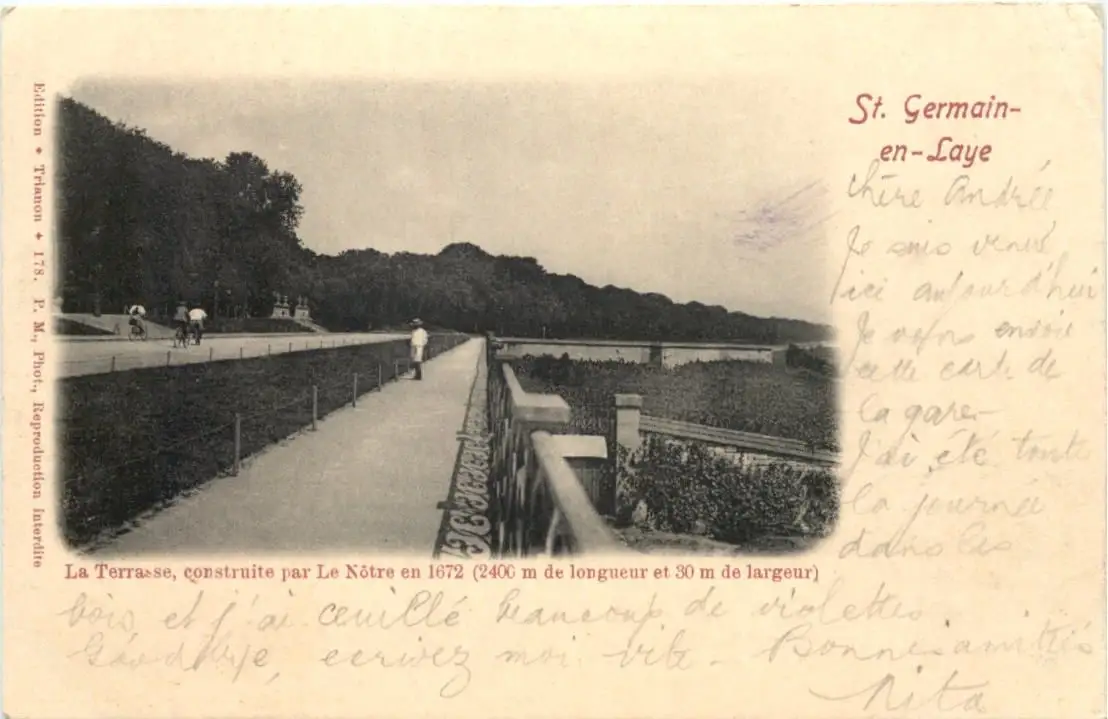 St. Germain-
en-Laye
Chère Andrée
Je suis venue
ici aujourd'hui
Je vous envoie
cette carte de
la gare-
J'ai été toute
la journée
dans les
Edition ✦ Trianon ✦ 178. P. M., Phot., Reproduction interdite
La Terrasse, construite par Le Nôtre en 1672 (2400 m de longueur et 30 m de largeur)
bois et j'ai ceuillé beaucoup de violettes
Goodbye, ecrivez moi vite - Bonnes amitiés
Rita